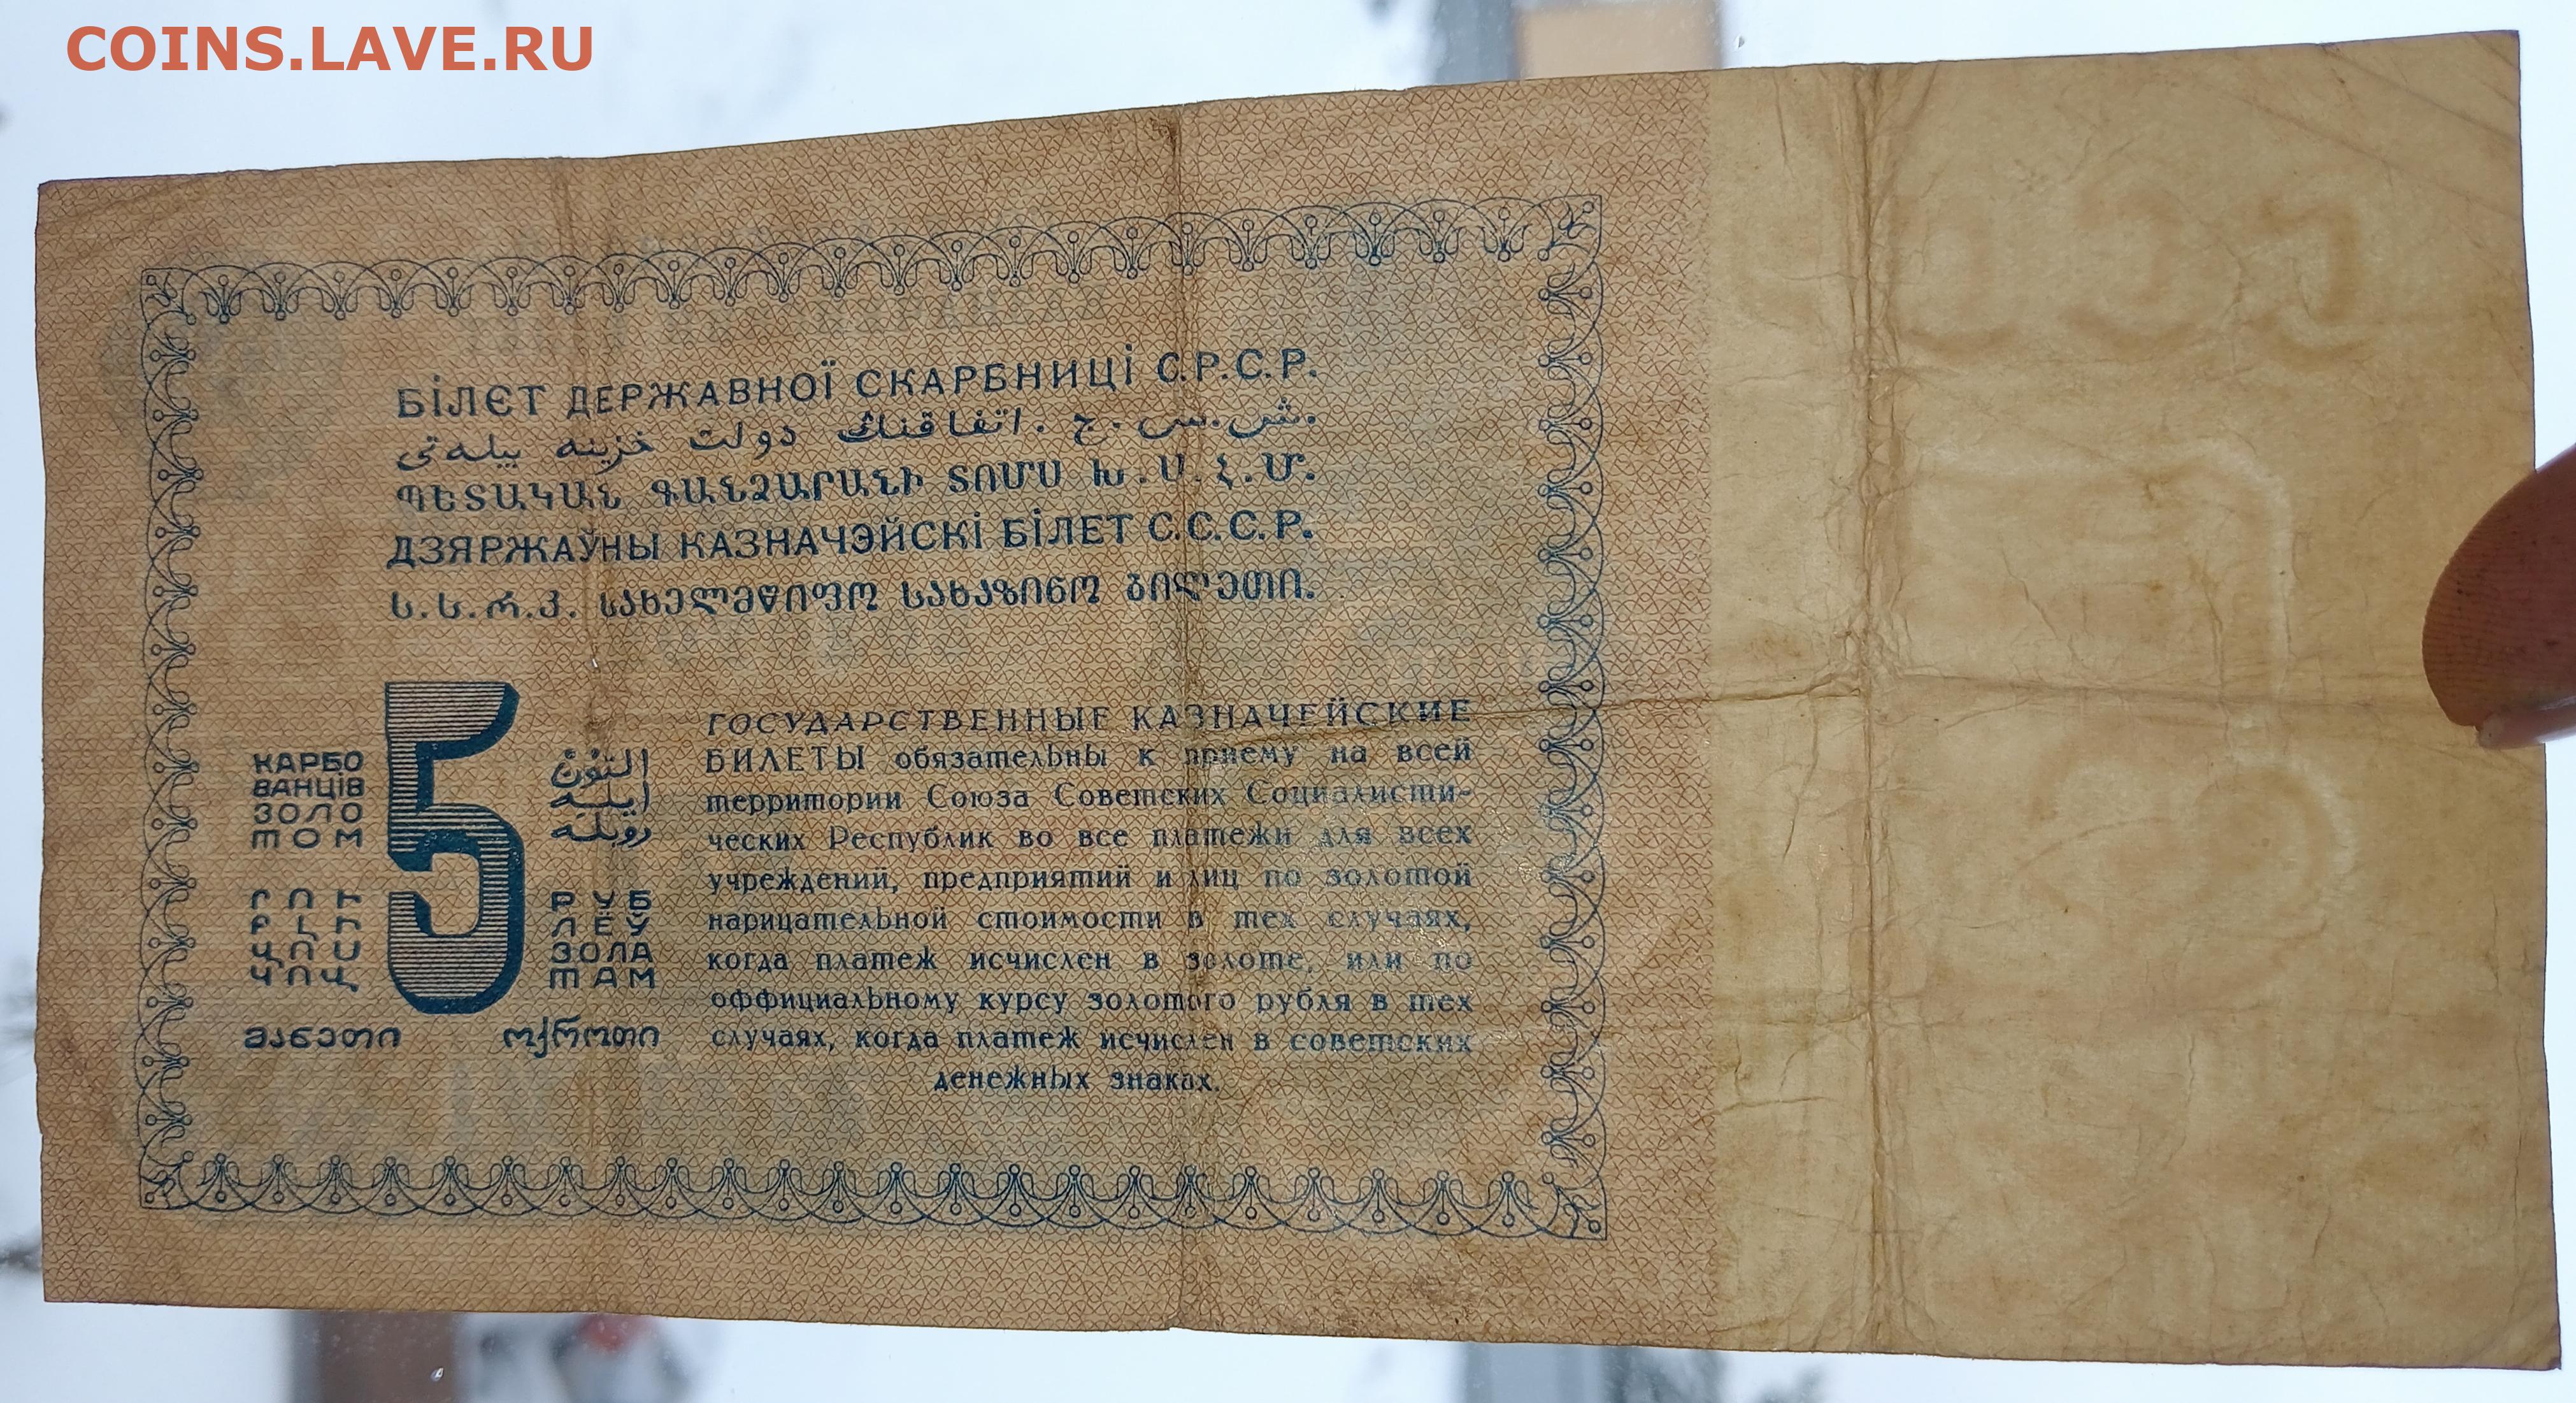 COINS.LAVE.RU
БІЛЄТ ДЕРЖАВНОЇ СКАРБНИЦІ С.Р.С.Р.
ش.س.ج. اتفاقنڭ دولت خزينه بيله‌تى
ՊԵՏԱԿԱՆ ԳԱՆՁԱՐԱՆԻ ՏՈՄՍ Խ.Ս.Հ.Մ.
ДЗЯРЖАЎНЫ КАЗНАЧЭЙСКІ БІЛЕТ С.С.С.Р.
ს.ს.რ.კ. სახელმწიფო სახაზინო ბილეთი.
5
КАРБО
ВАНЦІВ
ЗОЛО
ТОМ
التون
ايله
روبله
ՐՈՒ
ԲԼԻ
ՈՍԿՈՎ
РУБ
ЛЁЎ
ЗОЛА
ТАМ
მანეთი ოქროთი
ГОСУДАРСТВЕННЫЕ КАЗНАЧЕЙСКИЕ
БИЛЕТЫ обязательны к приему на всей
территории Союза Советских Социалисти-
ческих Республик во все платежи для всех
учреждений, предприятий и лиц по золотой
нарицательной стоимости в тех случаях,
когда платеж исчислен в золоте, или по
оффициальному курсу золотого рубля в тех
случаях, когда платеж исчислен в советских
денежных знаках.